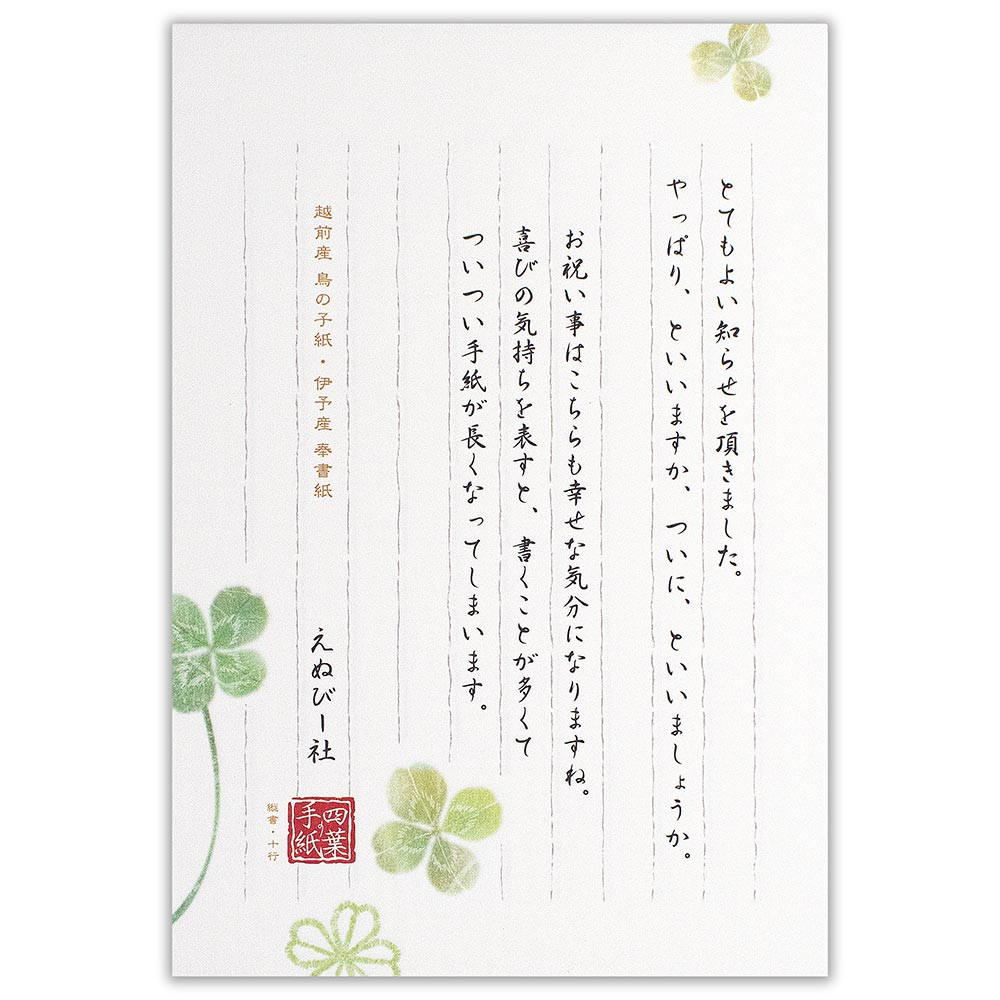 とてもよい知らせを頂きました。
やっぱり、といいますか、ついに、といいましょうか。
お祝い事はこちらも幸せな気分になりますね。
喜びの気持ちを表すと、書くことが多くて
ついつい手紙が長くなってしまいます。
越前産 鳥の子紙・伊予産 奉書紙
えぬびー社
四葉の
手紙
縦書・十行